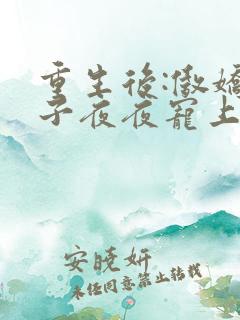 重生后:傲娇
子夜夜宠上
安晓妍
未经同意禁止转载